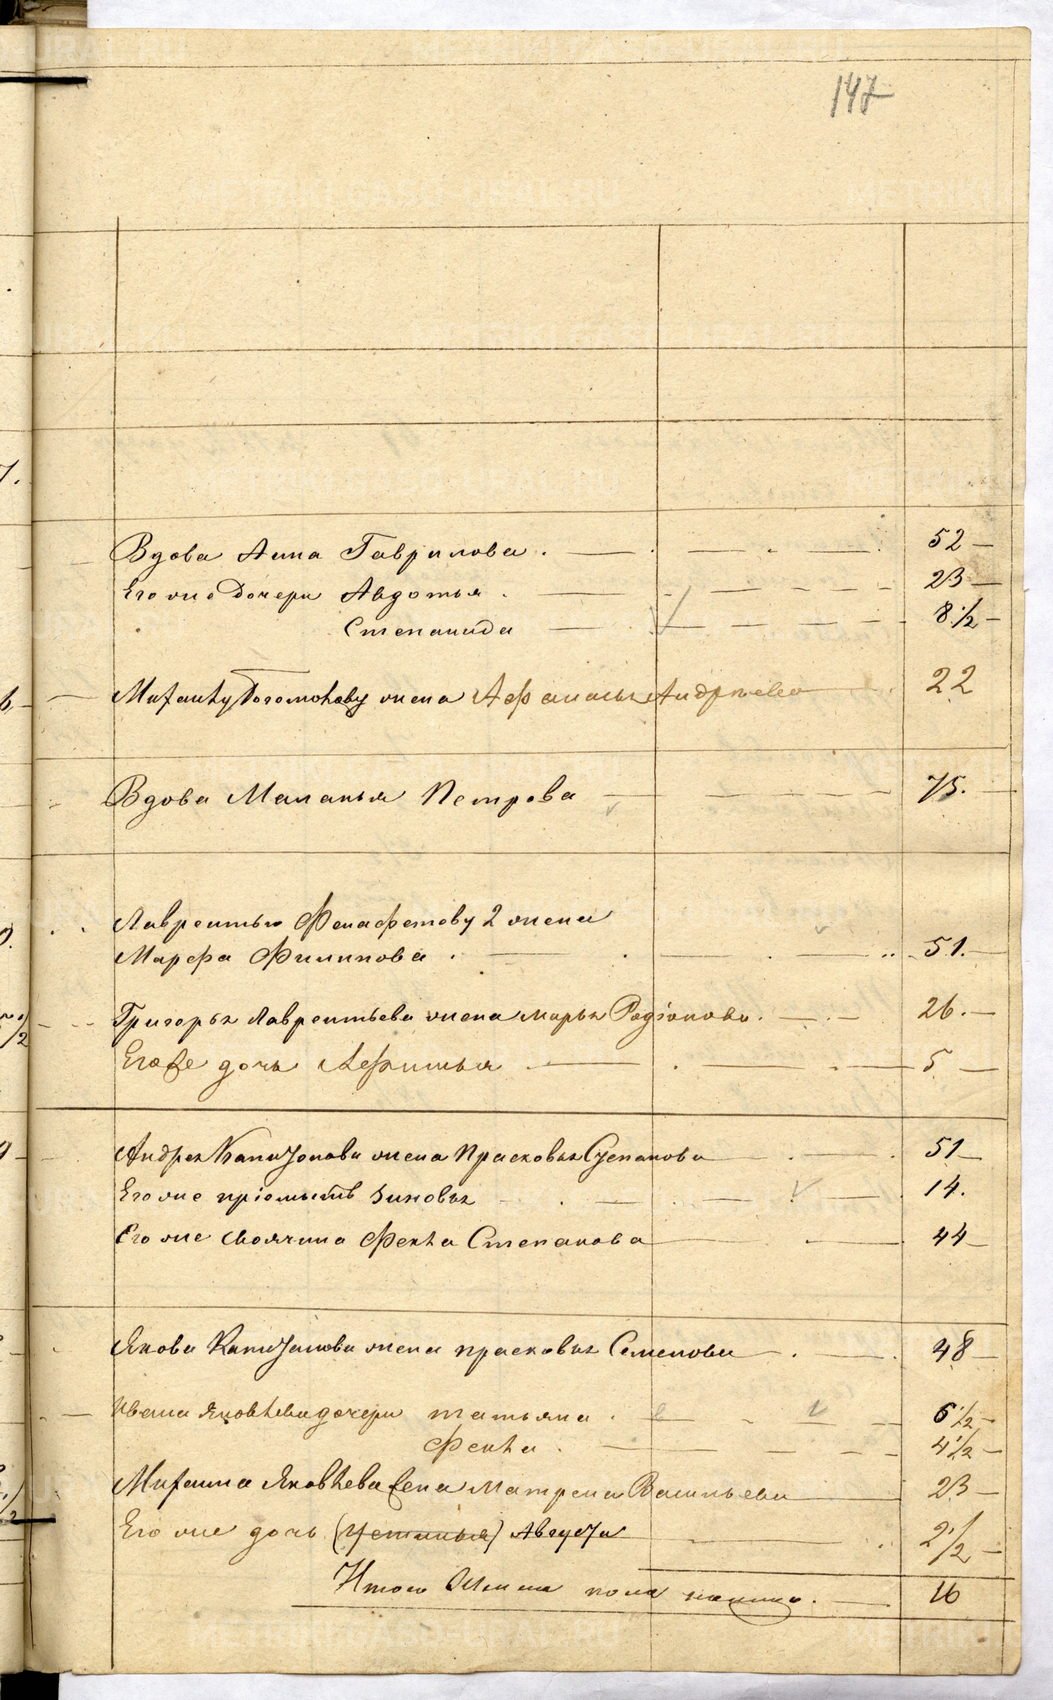 147
Вдова Анна Гаврилова 52
Его же дочери Авдотья 23
Степанида 8 1/2
жена Афанасья Андреева 22
Вдова Маланья Петрова 75.
Лаврентью 2 жена
Марфа Филипова 51.
Григорья Лаврентьева жена Марья Родіонова. 26.
Его же дочь Афимья 5
Андрея Капитонова жена Прасковья Степанова 51
Его же пріемышъ Зиновья 14.
Его же своячина Фекла Степанова 44
Якова Капитонова жена прасковья Семенова 48
Ивана Яковлева дочери татьяна 6 1/2
Фекла 4 1/2
Михаила Яковлева жена Матрена Васильева 23
Его же дочь (Устинья) Августа 2 1/2
Итого женска пола 16